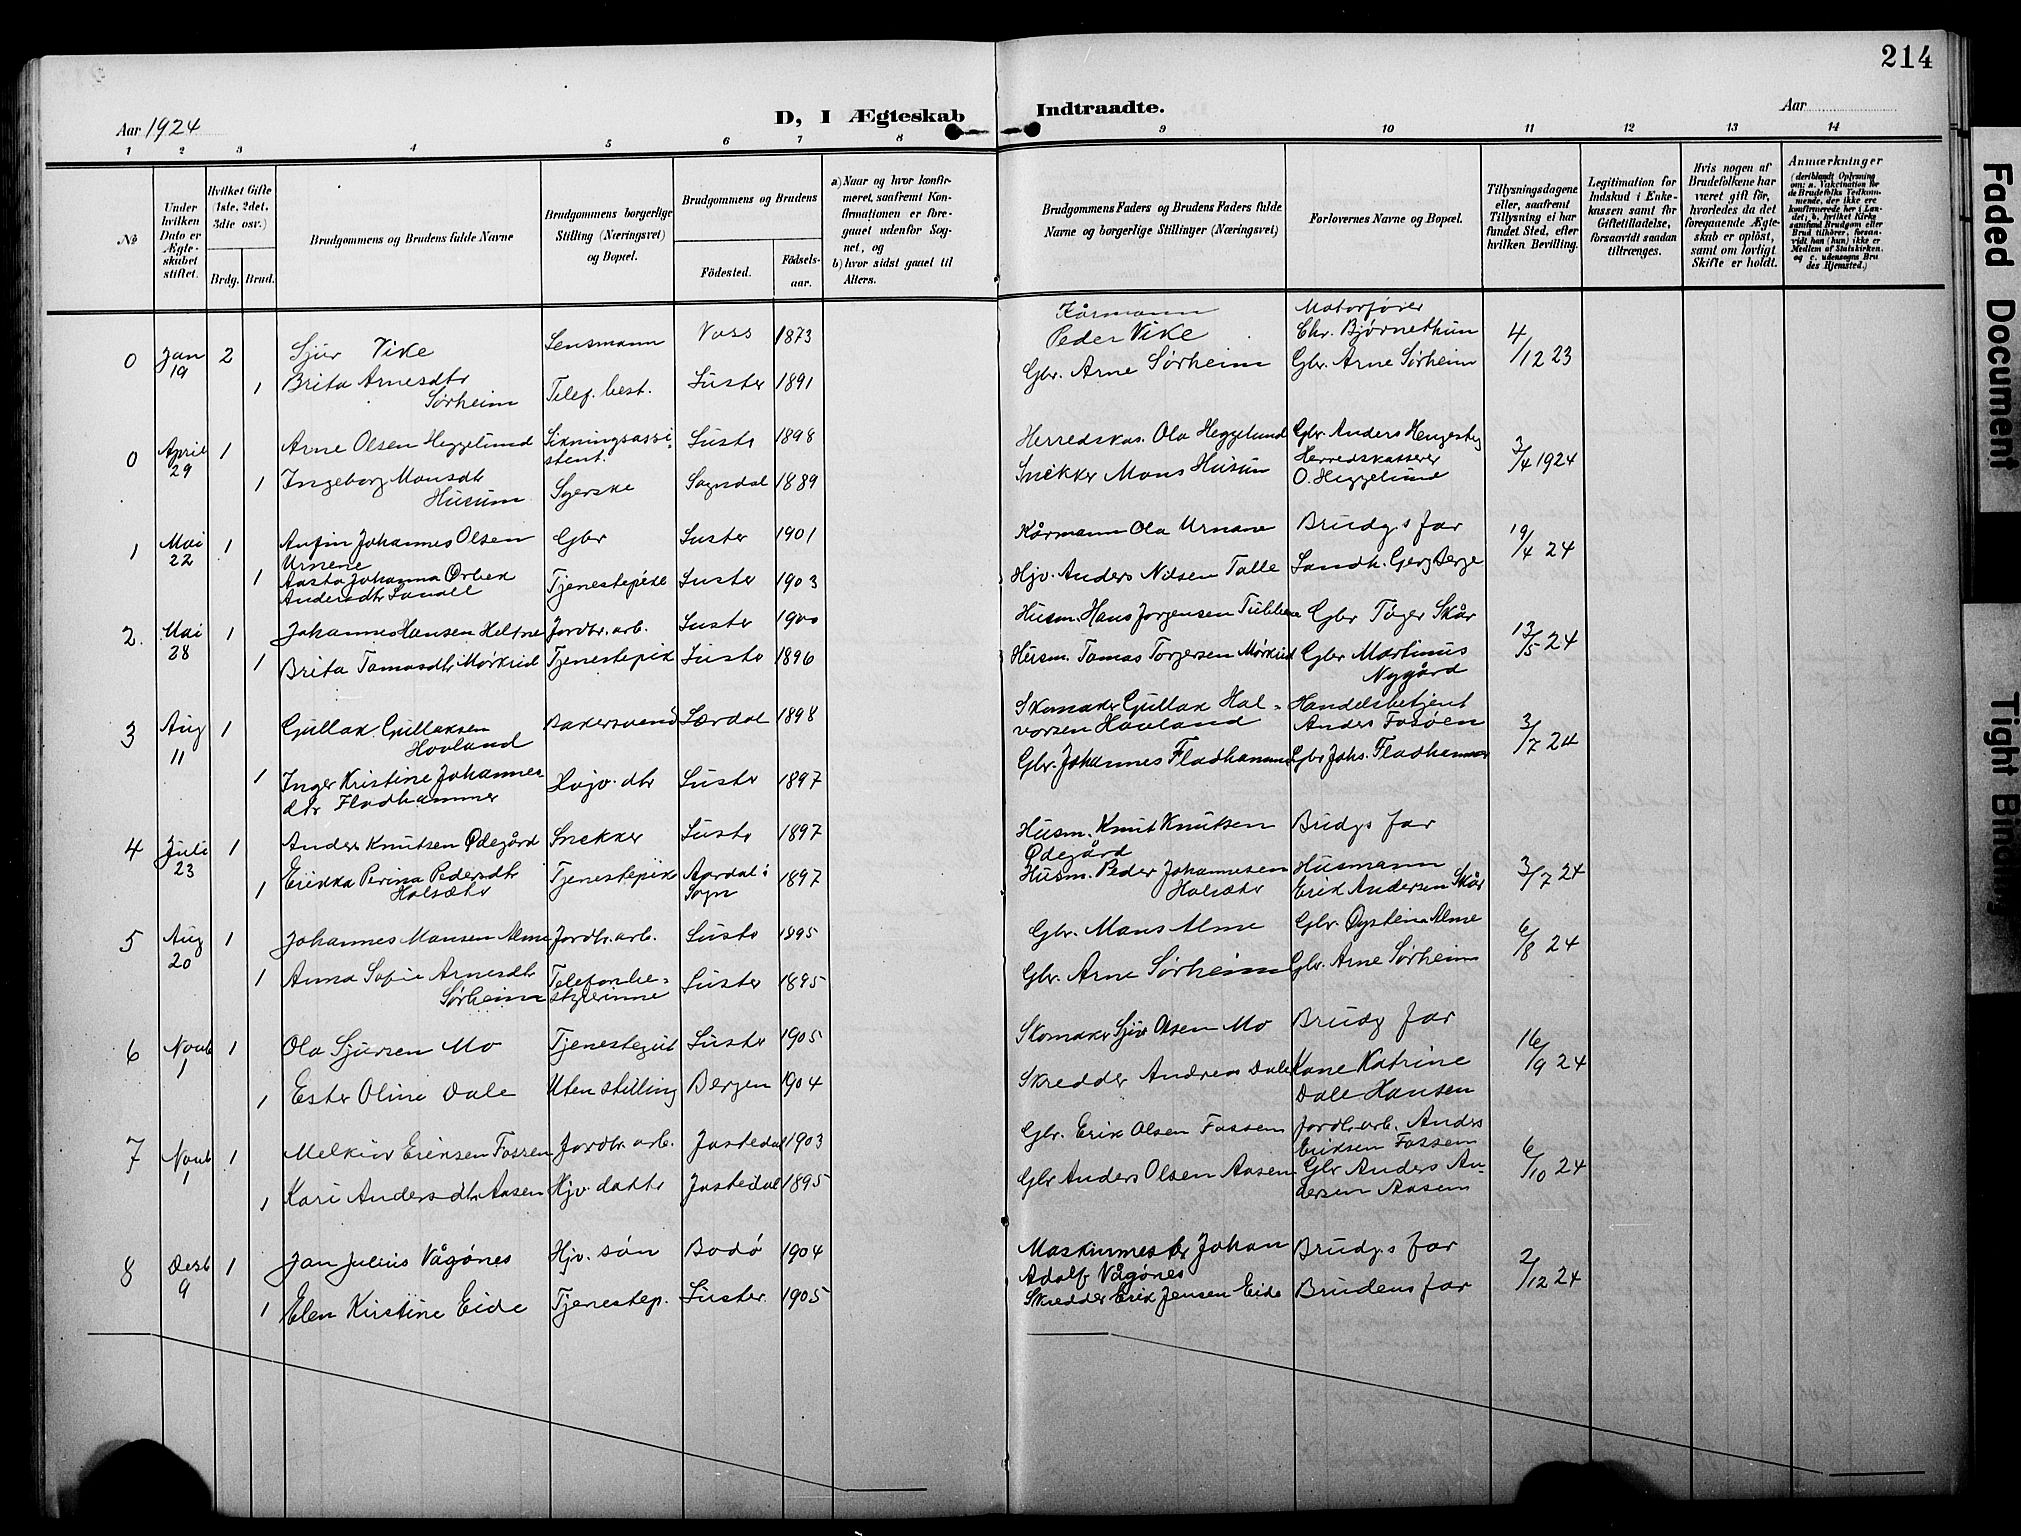 214
Aar 1924
D, I Ægteskab Indtraadte.
Aar
1 2 3 4 5 6 7 8 9 10 11 12 13 14
No
Under hvilken Dato er Ægteskabet stiftet.
Hvilket Gifte (1ste, 2det, 3die osv.)
Brdg. Brud.
Brudgommens og Brudens fulde Navne
Brudgommens borgerlige Stilling (Næringsvei) og Bopæl.
Brudgommens og Brudens
Födested.
Födselsaar.
a) Naar og hvor konfirmeret, saafremt Konfirmationen er foregaaet udenfor Sognet, og
b) hvor sidst gaaet til Alters.
Brudgommens Faders og Brudens Faders fulde Navne og borgerlige Stillinger (Næringsvei)
Forlovernes Navne og Bopæl.
Tillysningsdagene eller, saafremt Tillysning ei har fundet Sted, efter hvilken Bevilling.
Legitimation for Indskud i Enkekassen samt for Giftetilladelse, forsaavidt saadan tiltrænges.
Hvis nogen af Brudefolkene har været gift før, hvorledes da det foregaaende Ægteskab er opløst, samt om lovligt Skifte er holdt.
Anmærkninger
(deriblandt Oplysning om: a. Vaksination for de Brudefolks Vedkommende, der ikke ere konfirmerede her i Landet; b. hvilket Kirkesamfund Brudgom eller Brud tilhører, forsaavidt han (hun) ikke er Medlem af Statskirken. og c. udensogns Brudes Hjemsted.)
0 Jan 19 2 Sjur Vike Lensmann Voss 1873 Kårmann Peder Vike Motorfører Chr. Bjørnethun 4/12 23
1 Brita Arnesdtr Sørheim Telef. best. Luster 1891 Gbr. Arne Sørheim Gbr. Arne Sørheim
0 April 29 1 Arne Olsen Heggelund Likningsassistent. Lustr 1898 Herredskas. Ola Heggelund Gbr. Anders 3/4 1924
1 Ingeborg Monsdtr Husum Syerske Sogndal 1889 Snekker Mons Husum Herredskasserer O. Heggelund
1 Mai 22 1 Anfin Johannes Olsen Urnene Gbr Luster 1901 Kårmann Ola Urnane Brudg.s far 19/4 24
1 Aasta Johanna Ørbek Andersdtr Tjenestepike Luster 1903 Hjv. Anders Nilsen Talle Landh. Berge
2. Mai 28 1 Johannes Hansen Heltne Jordbr. arb. Luster 1900 Husm. Hans Jørgensen Gbr Tøger Skår 13/5 24
1 Brita Tomasdtr Mørkrid Tjenestepik Lustr 1896 Husm. Tomas Torgersen Mørkrid Gbr Martinus Nygård
3 Aug 11 1 Gullak Gullaksen Hovland Bakersvend Lærdal 1898 Skomaker Gullak Halvorsen Hovland Handelsbetjent Anders Fosøen 3/7 24
1 Inger Kristine Johannesdtr Fladhammer dtr Luster 1897 Gbr. Johannes Fladhammer Gbr Johs. Fladhammer
4 Juli 23 1 Anders Knutsen Ødegård Snekker Lustr 1897 Husm. Knut Knutsen Ødegård Brudgs far 3/7 24
1 Erikka Perina Pedersdtr Halsætr Tjenestepik Aardal i Sogn 1897 Husm. Peder Johannesen Halsætr Husmann Erik Andersen Skår
5 Aug 20 1 Johannes Monsen Alme Jordbr. arb. Lustr 1895 Gbr. Mons Alme Gbr. Øystein Alme 6/8 24
1 Anna Sofie Arnesdtr Sørheim Telefonbestyrerinne Luster 1895 Gbr. Arne Sørheim Gbr. Arne Sørheim
6 Novb 1 1 Ola Sjursen Mo Tjenestegut Luster 1905 Skomaker Sjur Olsen Mo Brudg far 16/9 24
1 Ester Oline Dale Uten stilling Bergen 1904 Skredder Andreas Dale Kone Katrine Dale Hansen
7 Novb 1 1 Melkior Eriksen Fossen Jordbr. arb. Jostedal 1903 Gbr. Erik Olsen Fossem Jordbr. arb. Anders Eriksen Fossem 6/10 24
1 Kari Andersdtr Aasen Hjv. dattr Jostedal 1895 Gbr Anders Olsen Aasen Gbr Anders Andersen Aasen
8 Desb 9 1 Jan Julius Vågønes Hjv. søn Bodø 1904 Maskinmester Johan Adolf Vågønes Brudg.s far 2/12 24
1 Elen Kirstine Eide Tjenestep. Luster. 1905 Skredder Erik Jensen Eide Brudens far
Faded Document
Tight Binding